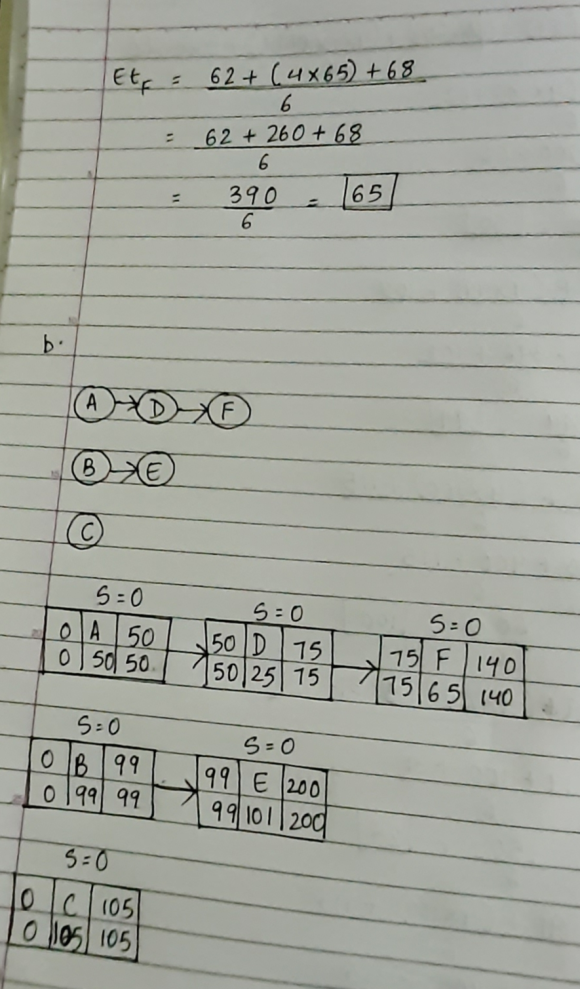 Et_F = 62 + (4×65) + 68
6
= 62 + 260 + 68
6
= 390 = 65
6
b.
A → D → F
B → E
C
S=0 S=0 S=0
0 A 50 → 50 D 75 → 75 F 140
0 50 50 50 25 75 75 65 140
S=0 S=0
0 B 99 → 99 E 200
0 99 99 99 101 200
S=0
0 C 105
0 105 105